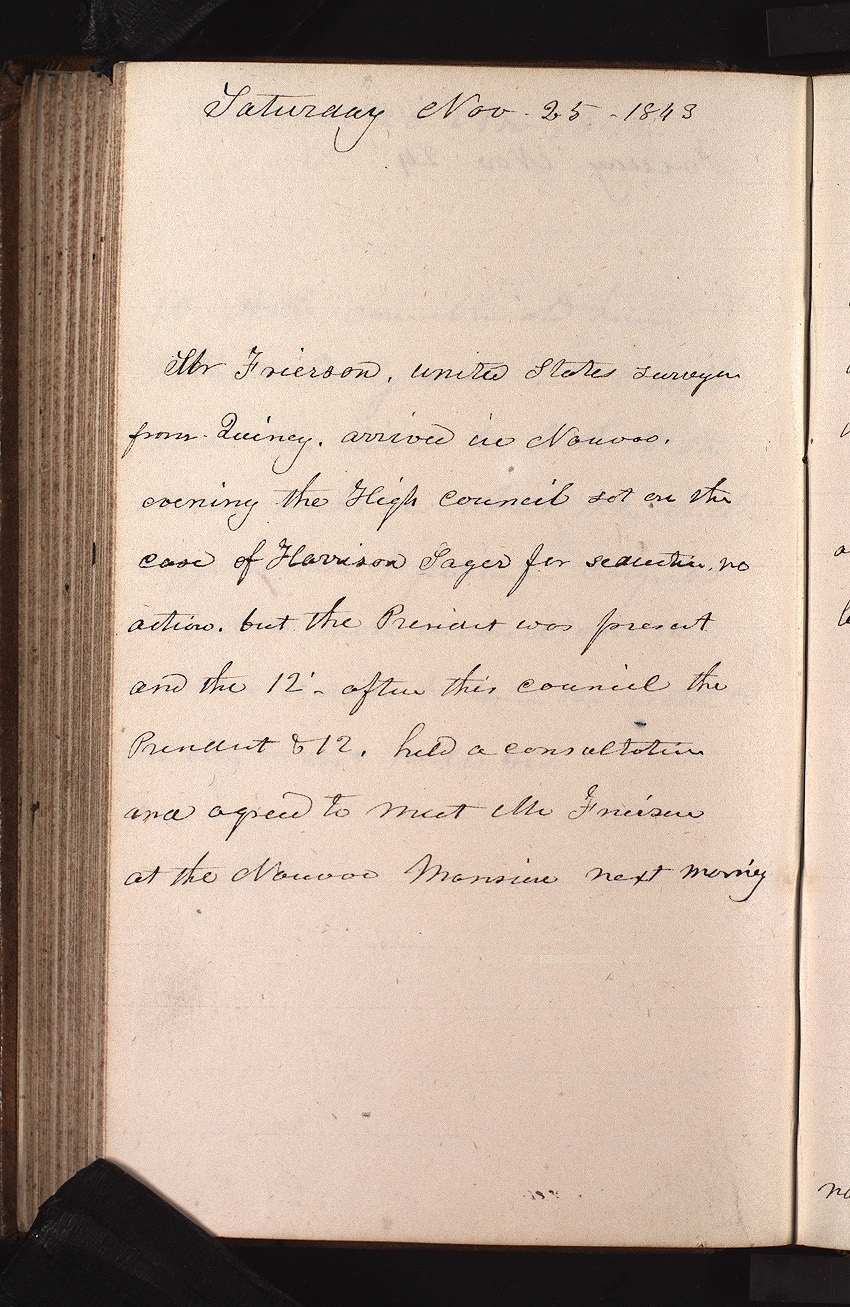 Saturday Nov. 25 - 1843
Mr Frierson, united States surveyor
from Quincy. arrived in Nauvoo.
evening the High council sat on the
case of Harrison Sager for seduction, no
action. but the President was present
and the 12 - after this council the
President & 12. held a consultation
and agreed to meet Mr Frierson
at the Nauvoo Mansion next morning